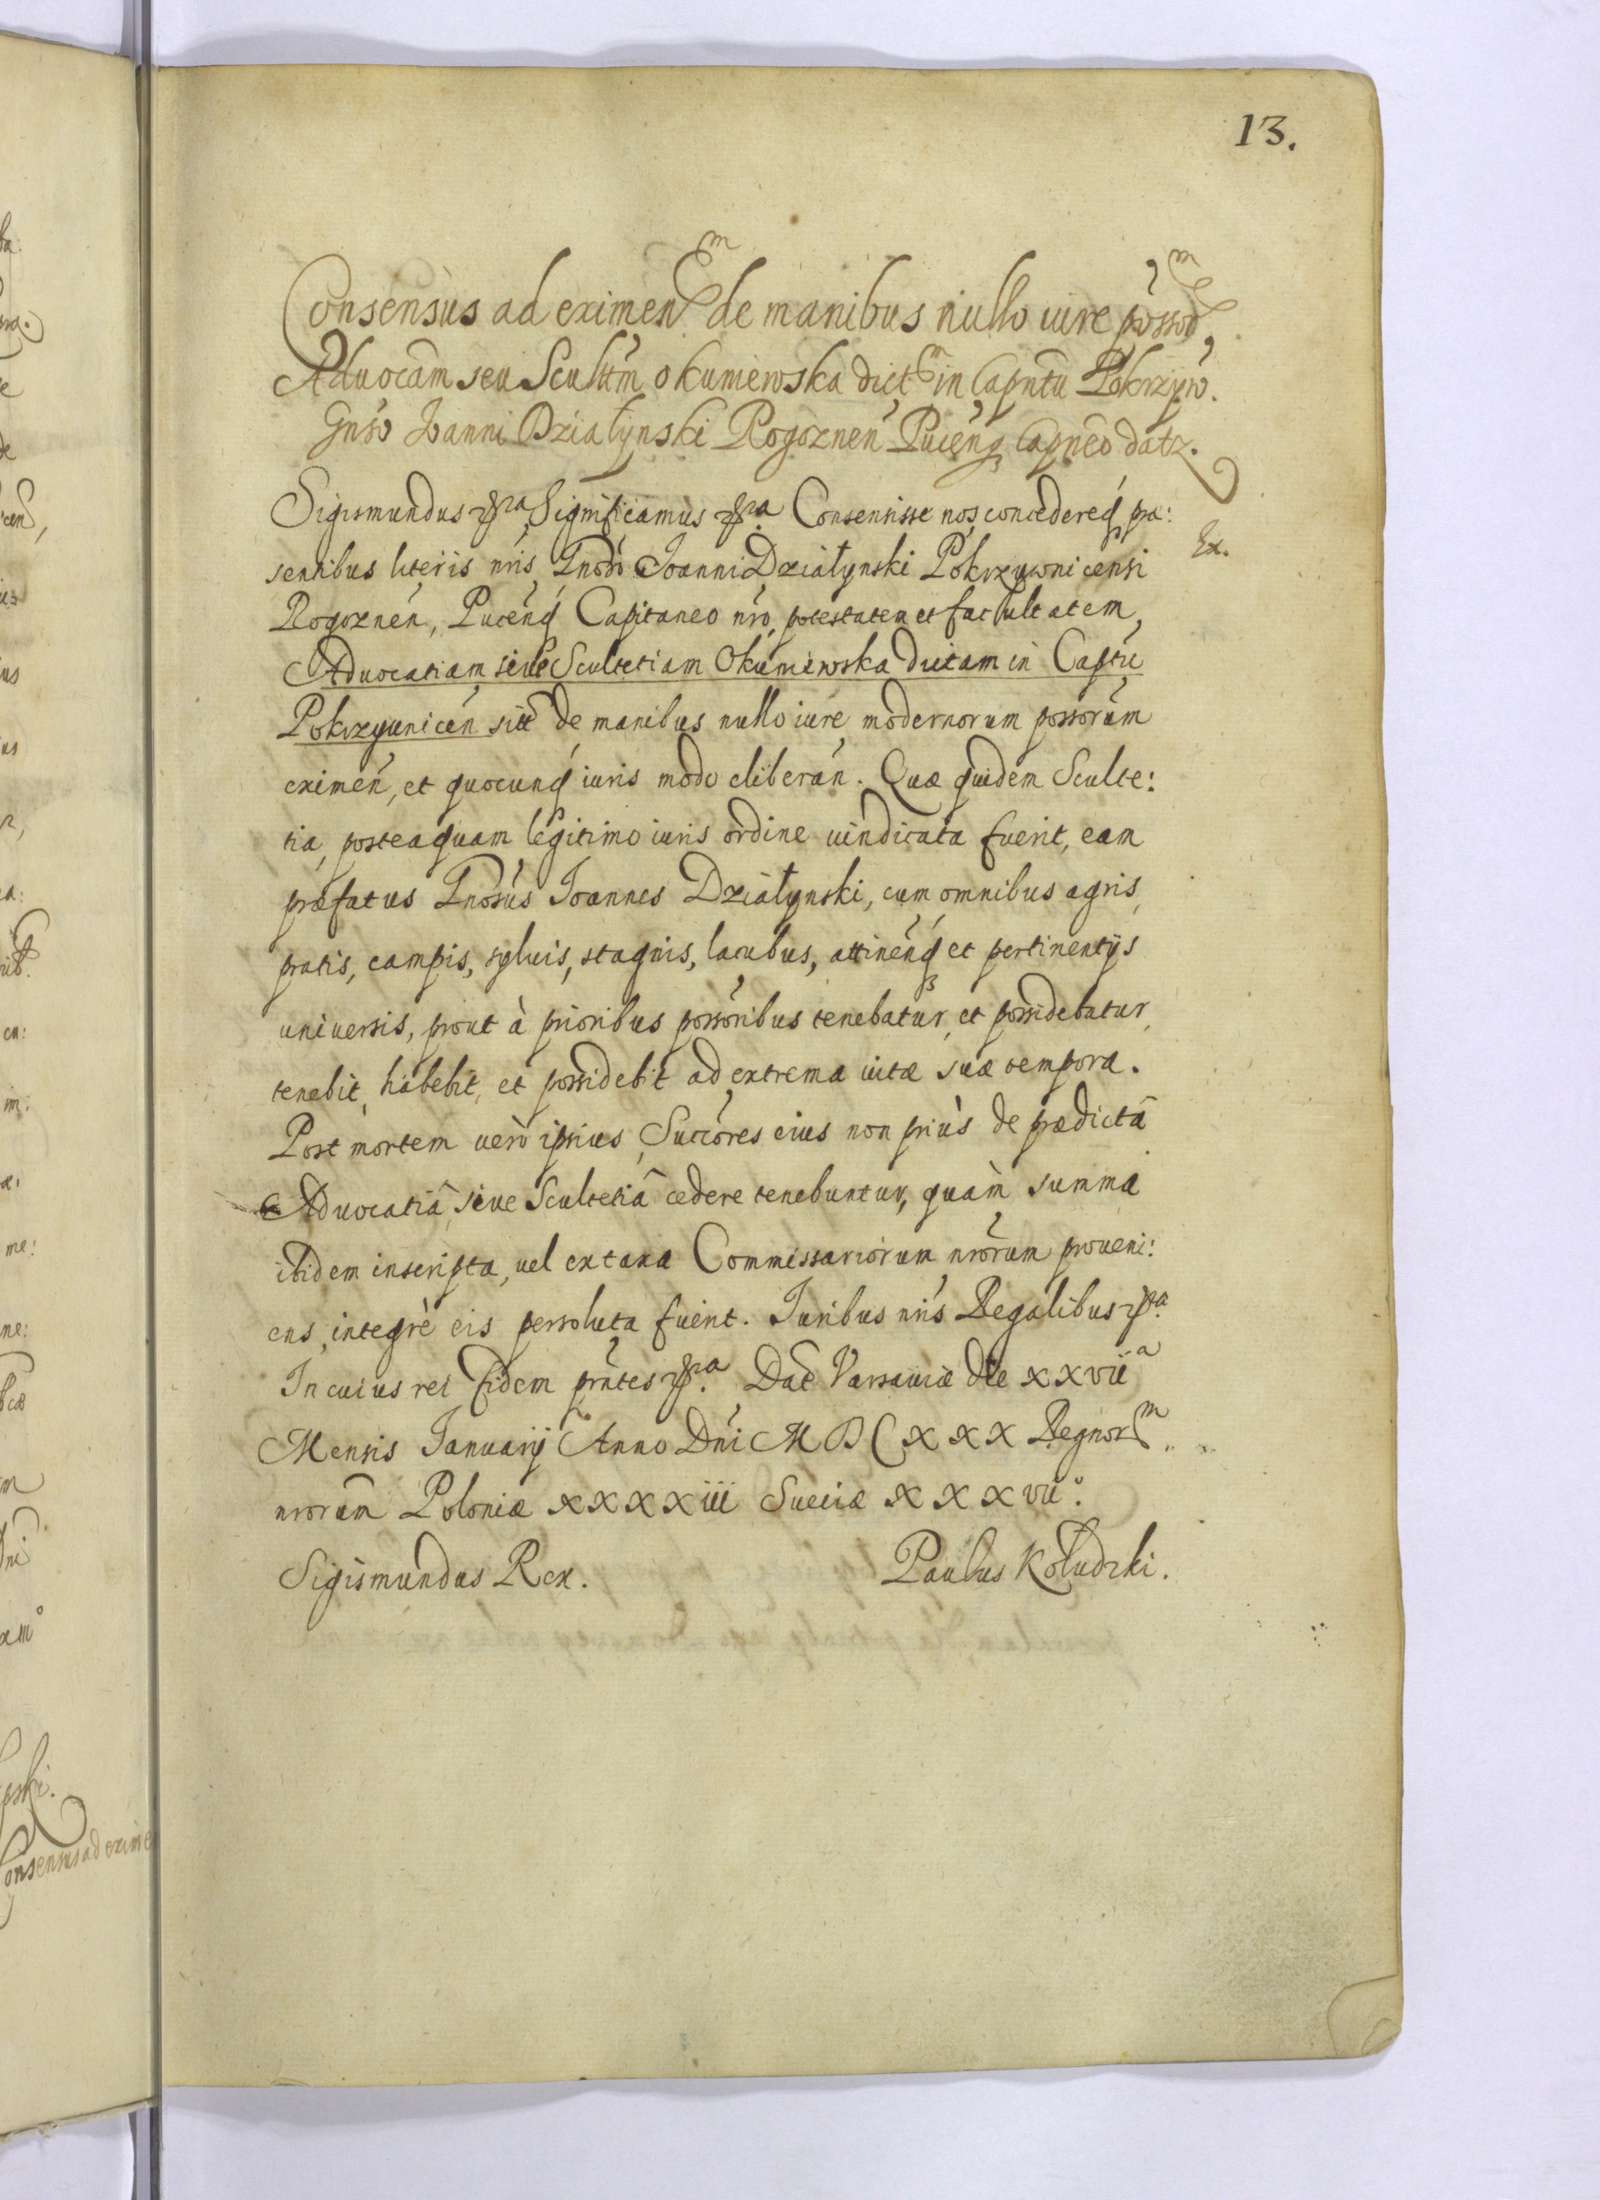 13.
Consensus ad eximen͠m de manibus nullo iure possor͠m,
Aduocãm seu Scultt̃m Okuniewska dict͠m in Capñtu Pokrzyw.
Gnŝo Ioanni Działynski Rogoznen̂ Pucenq́ Capn̂eo datz.
Sigismundus ꝛꝑa Significamus ꝛꝑa Consensisse nos concedereq́ prae:
Ex.
sentibus literis nr̂is Gnoŝo Ioanni Działynski Pokrzywnicensi
Rogoznen̂, Pucenq́ Capitaneo nr̂o, potestatem et facultatem,
Aduocatiam siue Scultetiam Okuniewska dictam in Captũ
Pokrzywnicen̂ sitt̃ de manibus nullo iure modernorum possorũm
eximen̂, et quocunq́ iuris modo eliberan̂. Quæ quidem Sculte:
tia, posteaquam legitimo iuris ordine uindicata fuerit, eam
præfatus Gnosûs Ioannes Działynski, cum omnibus agris,
pratis, campis, syluis, stagnis, lacubus, attinenq́ et pertinentijs
uniuersis, prout à prioribus possoribus tenebatur, et possidebatur,
tenebit, habebit, et possidebit ad extrema uitæ suæ tempora.
Post mortem uerò ipsius, Succôres eius non priùs de prædictâ
Aduocatiâ, siue Scultetiâ cedere tenebuntur, quàm summa
ibidem inscripta, uel ex taxa Commissariorum nrôrum proueni:
ens, integrè eis persoluta fuerit. Iuribus nr̂is Regalibus ꝛꝑa.
In cuius rei fidem prn̂tes ꝛꝑa. Dat̃ Varsauiæ die xxvii a
Mensis Ianuarij Anno Dn̂i MDCxxx Regnor͠m
nrorũm Poloniæ xxxxiii Sueciæ xxxvii°.
Sigismundus Rex. Paulus Kołudzki.